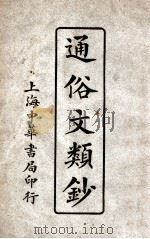 通俗文類鈔
上海中華書局印行
www.mtoou.info